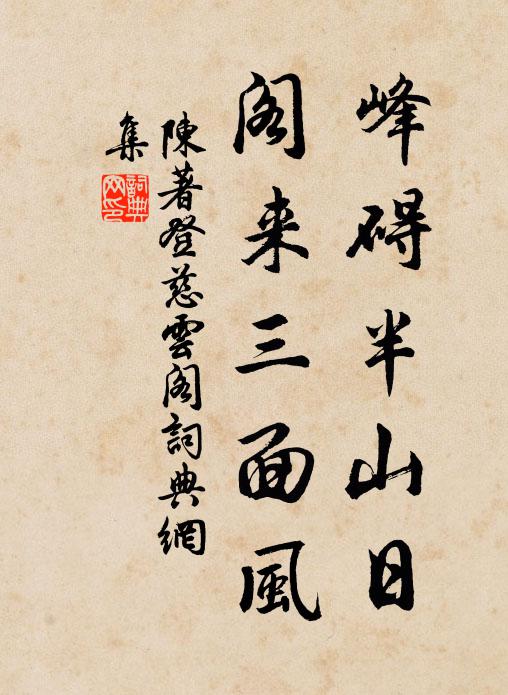 峰碍半山日
阁来三面風
陳著登慈雲阁詞典網
集
詞典
网印